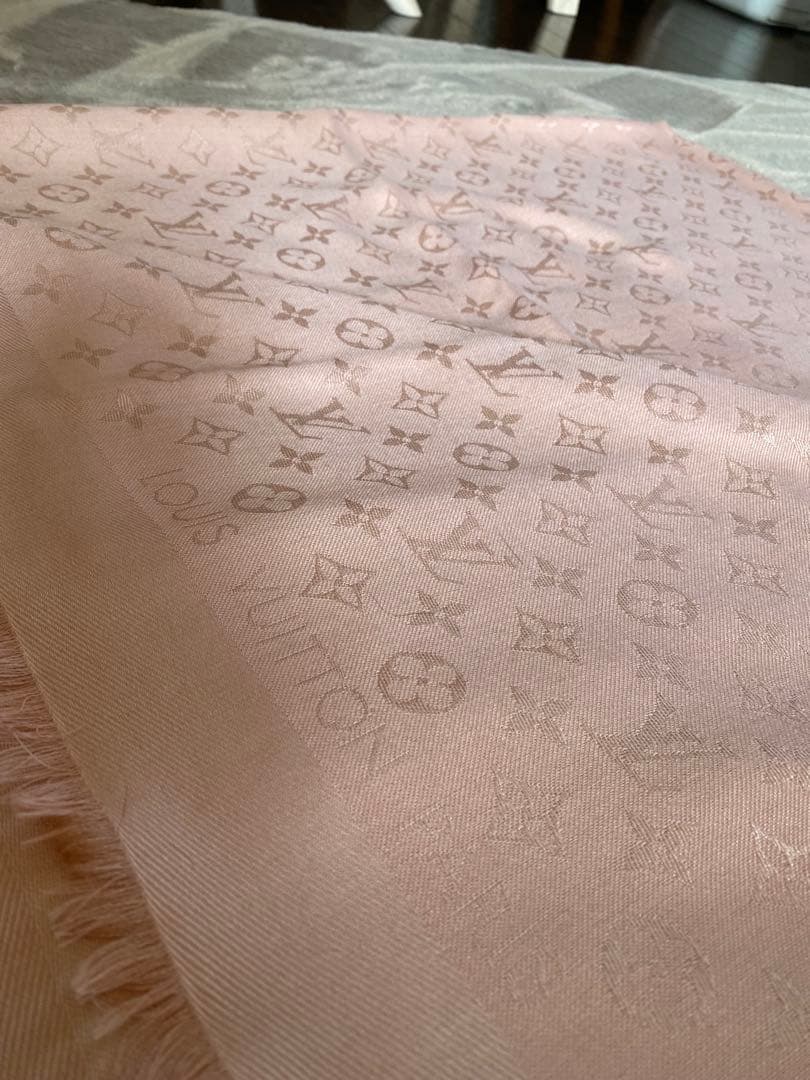 LOUIS VUITTON